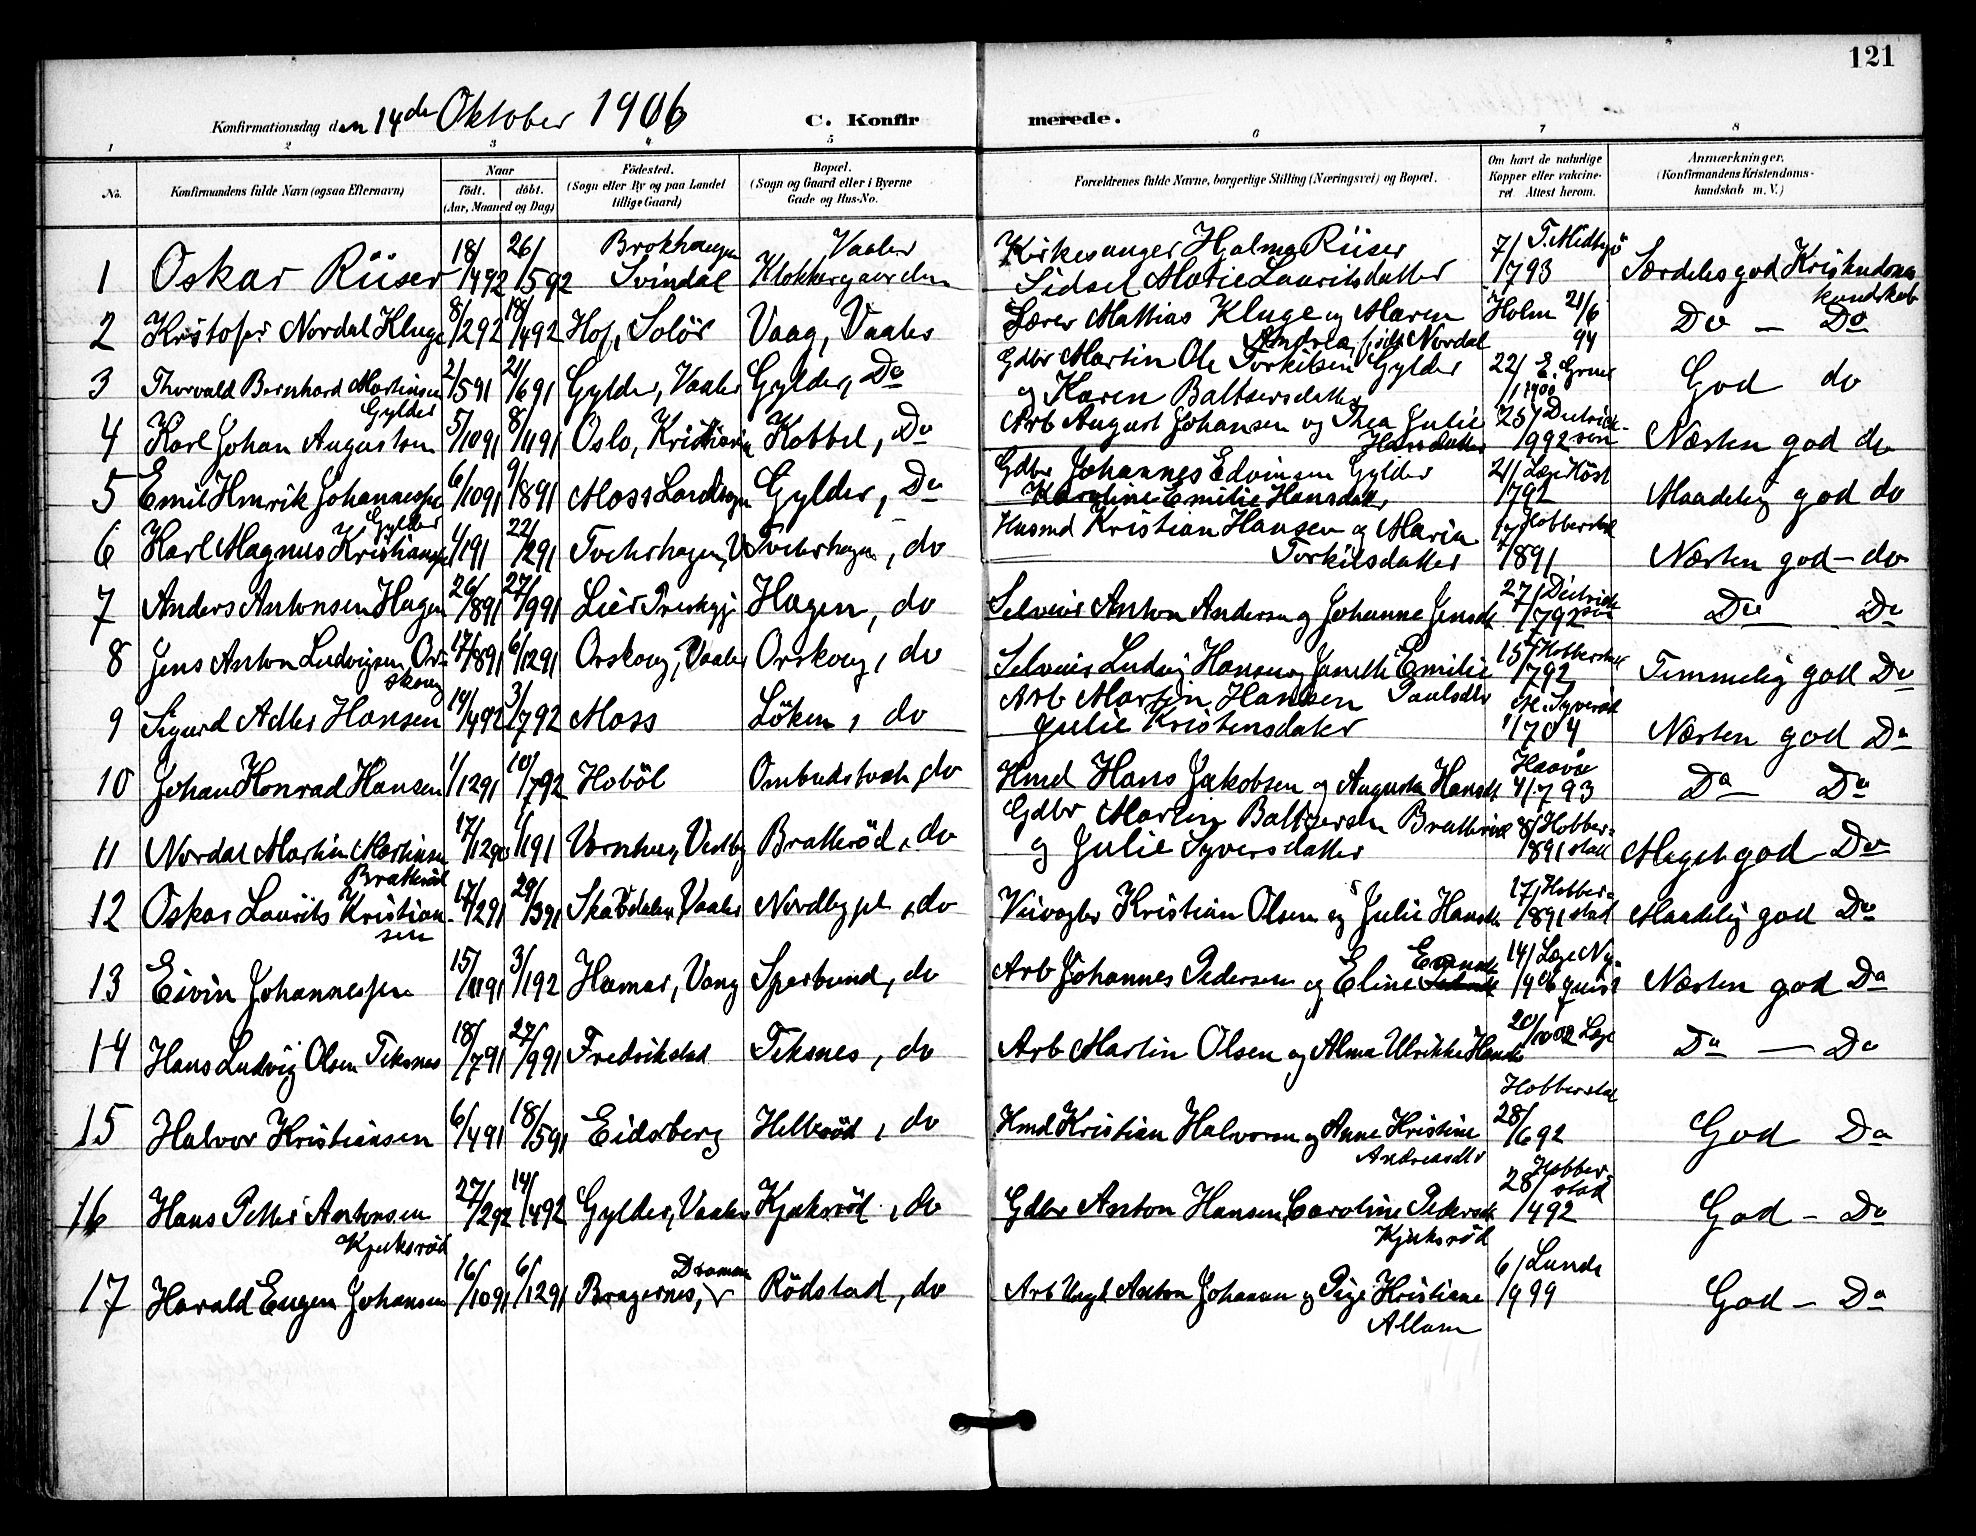 121
Konfirmationsdag den 14de Oktober 1906 C. Konfirmerede.
1 2 3 4 5 6 7 8
No. Konfirmandens fulde Navn (ogsaa Efternavn) Naar født. døbt. (Aar, Maaned og Dag) Fødested. (Sogn eller By og paa Landet tillige Gaard) Bopæl. (Sogn og Gaard eller i Byerne Gade og Hus-No. Forældrenes fulde Navne, borgerlige Stilling (Næringsvei) og Bopæl. Om havt de naturlige Kopper eller vaccineret. Attest herom. Anmærkninger. (Konfirmandens Kristendomskundskab m. V.)
1 Oskar Riiser 18/4 92 26/5 92 Svindal Vaaler Klokkergaarden Kirkesanger Hjalmar Riiser Sidsel Marie Lauritsdatter 7/7 93 Særdeles god Kristendomskundskab
2 Kristofer Nordal Kluge 8/2 92 18/4 92 Hof, Solör Vaag, Vaaler Lærer Mattias Kluge og Maren Andrea, födt Nordal Holm 21/6 94 Do — Do
3 Thorvald Bernhard Martinsen Gylder 2/5 91 21/6 91 Gylder, Vaaler Gylder, Do Gdbr Martin Ole Torkilsen Gylder og Karen Baltsersdatter 22/1 1900 God do
4 Karl Johan Augustsen 5/10 91 8/11 91 Oslo, Kristiania Kobbel, Do Arb August Johansen og Thea Julie Hansdatter 25/9 92 Næsten god do
5 Emil Henrik Johannessen Gylder 6/10 91 9/8 91 Moss Landsogn Gylder, Do Gdbr Johannes Edvinsen Gylder Karoline Emilie Hansdatr 21/7 92 Læge Höst Maadelig god do
6 Karl Magnus Kristiansen 1/1 91 22/2 91 Tveterhagen, V Tveterhagen, do Husmd Kristian Hansen og Maria Torkilsdatter Hobberstad 8 91 Næsten god — do
7 Anders Antonsen Hagen 26/8 91 27/9 91 Lier Præstgj Hagen, do Selveier Anton Andersen og Johanne Jensdt 27/7 92 Do Do
8 Jens Anton Ludvigsen Orskoug 17/8 91 6/12 91 Orskoug, Vaaler Orskoug, do Selveier Ludvig Hansen og Janette Emilie Paulsdtr 15/7 92 Hobberstad Temmelig god Do
9 Sigurd Adler Hansen 14/4 92 3/7 92 Moss Löken, do Arb Martin Hansen Julie Kristensdater Næsten god Do
10 Johan Konrad Hansen 1/12 91 10/7 92 Hoböl Ombudstvet, do Hmd Hans Jakobsen og Augusta Hansdt 4/7 93 Do — Do
11 Nordal Martin Martinsen Bratteröd 17/12 90 1/1 91 Bratteröd, do Gdbr Martin Baltzersen Bratteröd og Julie Syversdatter 8/8 91 Hobberstad Meget god Do
12 Oskar Laurits Kristiansen 17/2 91 29/3 91 Vaaler Nordby pl, do Kristian Olsen og Julie Hansdt 17/8 91 Hobberstad Maadelig god Do
13 Eivin Johannessen 15/11 91 3/1 92 Hamar, Vang Sperbund, do Arb Johannes Pedersen og Eline 14/9 06 Læge Nyquist Næsten god Do
14 Hans Ludvig Olsen Teksnes 18/7 91 27/9 91 Fredrikstad Teksnes, do Arb Martin Olsen og Alma Ulrikke Hansdt Læge Do — Do
15 Halvor Kristiansen 6/4 91 18/5 91 Eidsberg Helleröd, do Hmd Kristian Halvorsen og Anne Kristine Andreasdtr Hobberstad 28/6 92 God Do
16 Hans Petter Antonsen Kjeksröd 27/2 92 14/4 92 Gylder, Vaaler Kjeksröd, do Gdbr Anton Hansen, Caroline Pedersdt Kjeksröd 28/4 92 Hobberstad God — Do
17 Harald Eugen Johansen 16/10 91 6/12 91 Bragernes, Drammen Rödstad, do Arb Ungk Anton Johansen og Pige Kristiane Allom 6/9 99 Lunde God — Do